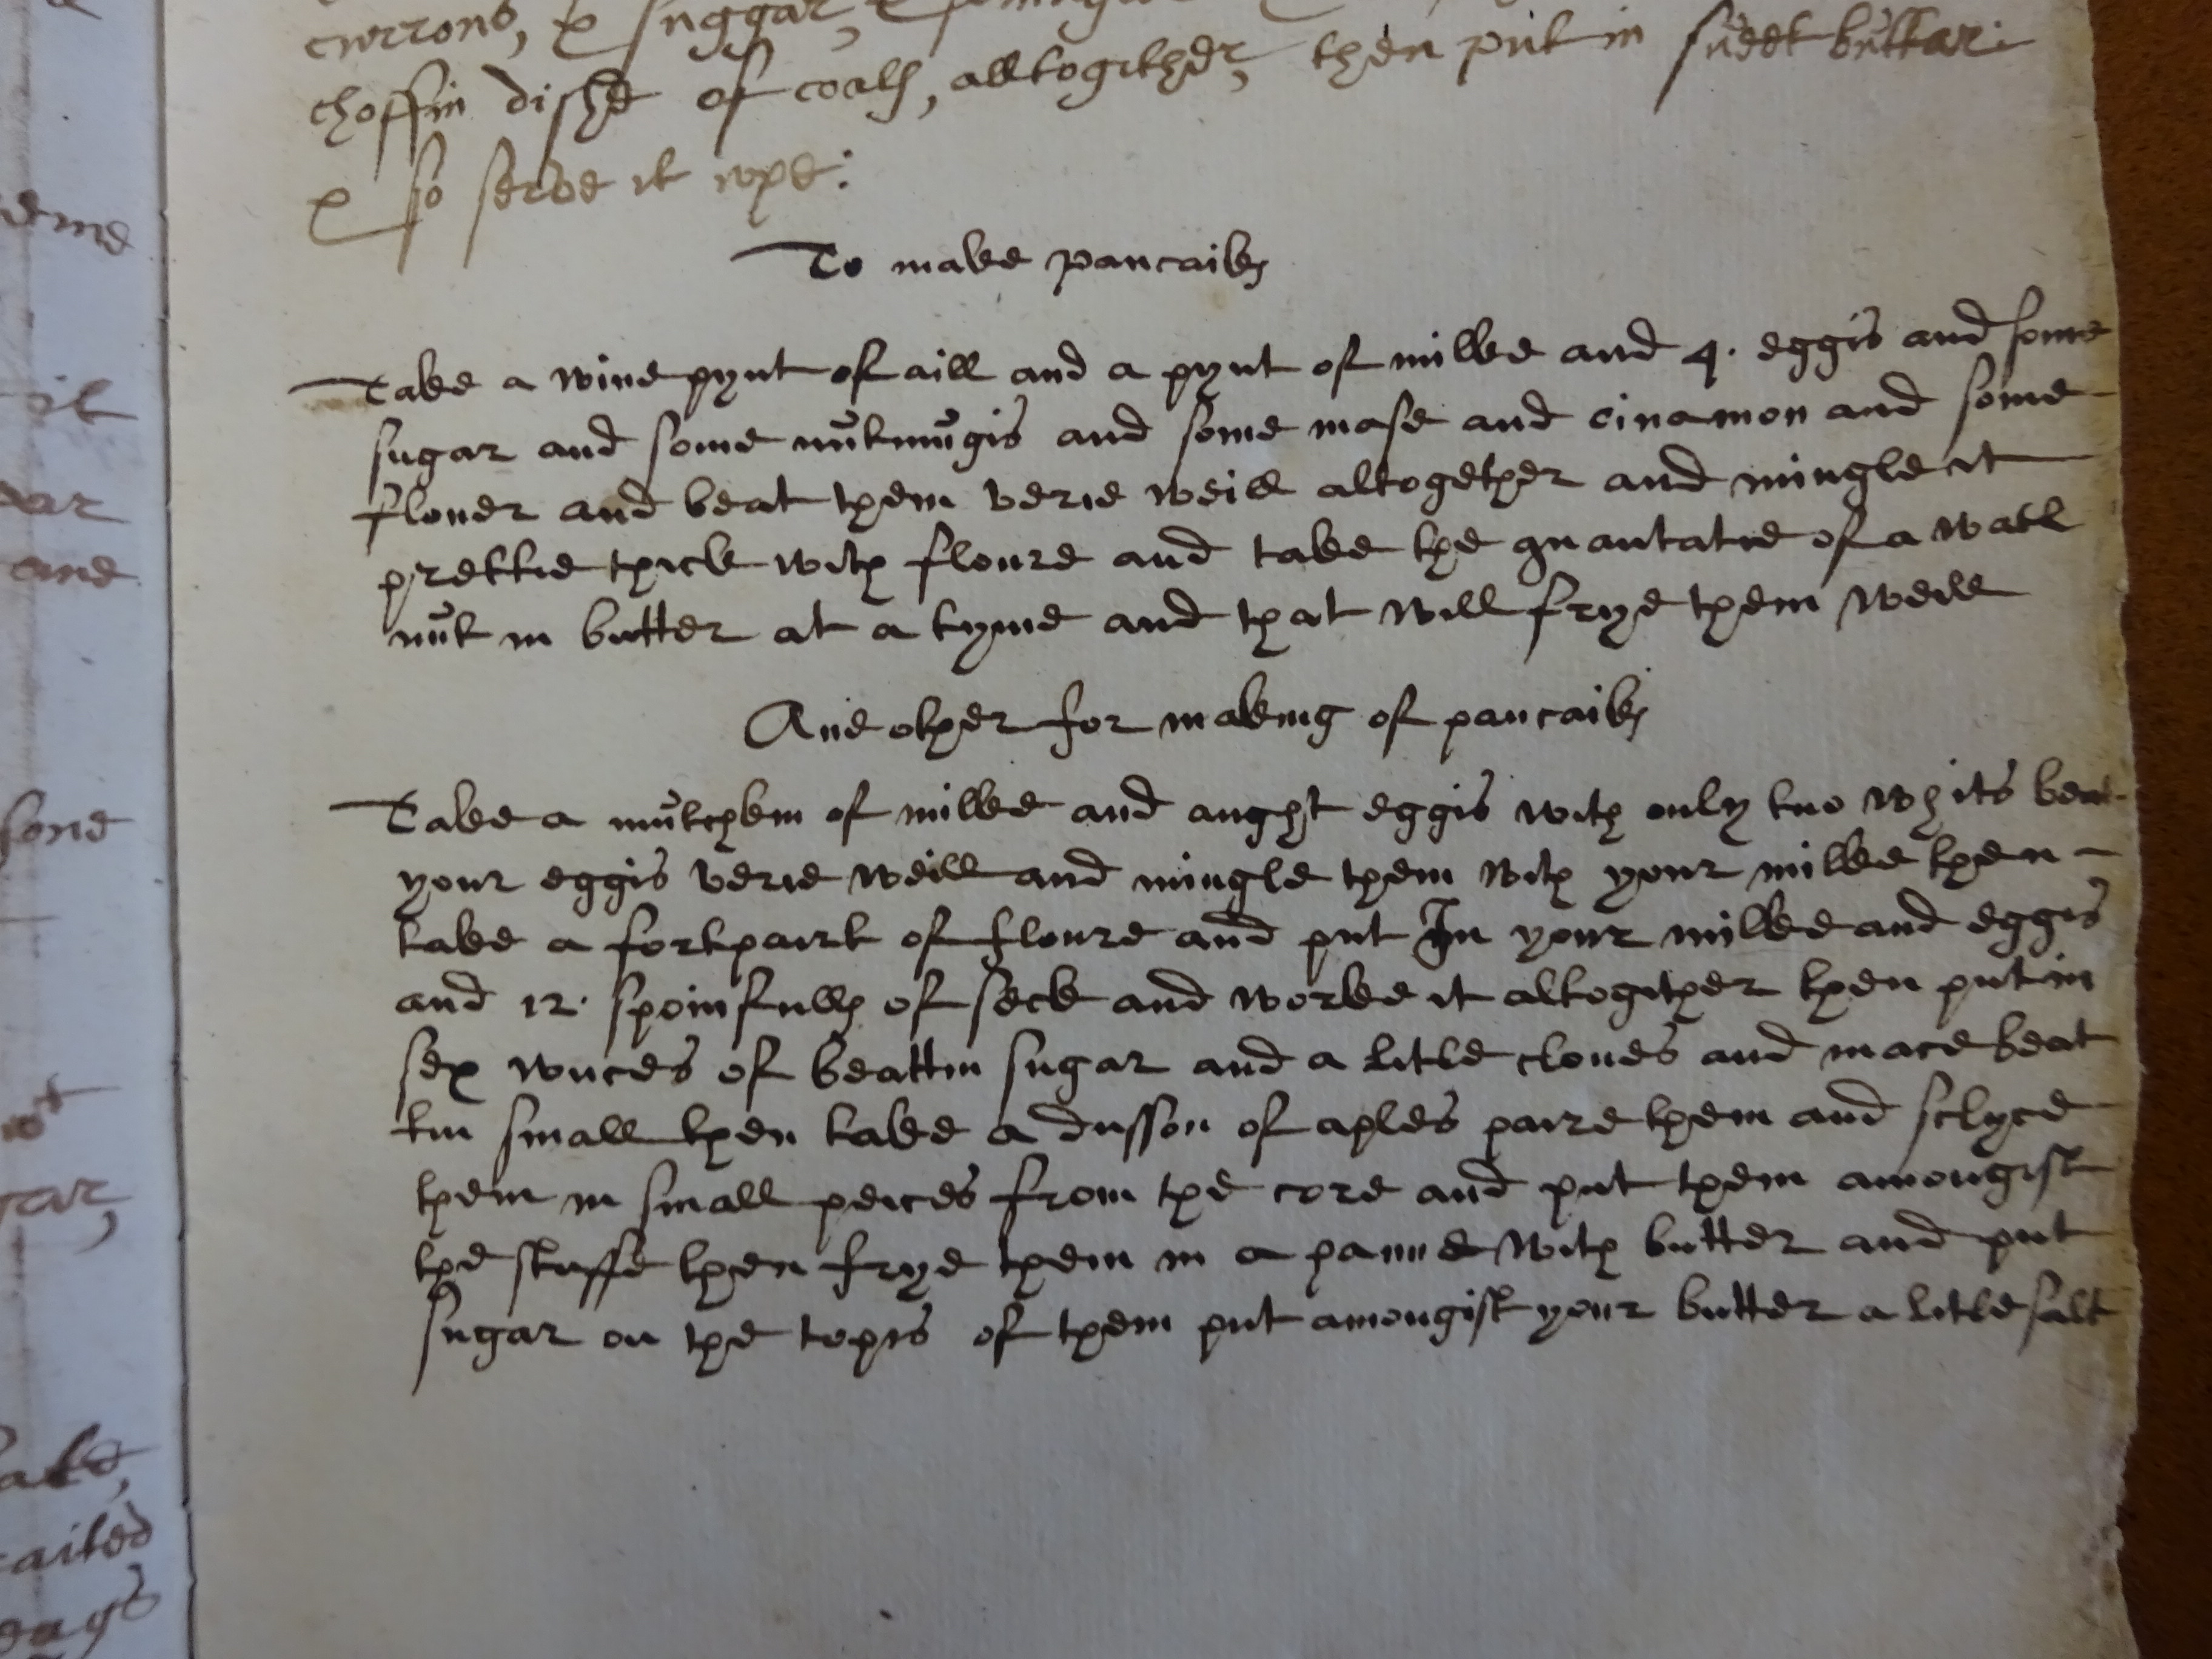 currons, & suggar,
choffin dishe of coalls, alltogither, then put in sueet buttar:
& so serve it wpe:
To make pancaikis
Take a wine pynt of aill and a pynt of milke and 4. eggis and some
sugar and some nutmugis and some mase and cinamon and some
flouer and beat them verie weill altogether and mingle it
prettie thick with floure and take the quantatie of a wall
nut in butter at a tyme and that will frye them weill
Ane other for making of pancaikis
Take a mutchkin of milke and aught eggis with only tuo whits beat
your eggis verie weill and mingle them with your milke then
take a fortpairt of floure and put In your milke and eggis
and 12. spoinfulls of seck and worke it altogither then put in
sex wnces of beattin sugar and a litle cloues and mace beat
tin small then take a dusson of aples paire them and sclyce
them in small peices from the core and put them amongist
the stuffe then frye them in a panne with butter and put
sugar on the topis of them put amongist your butter a litle salt